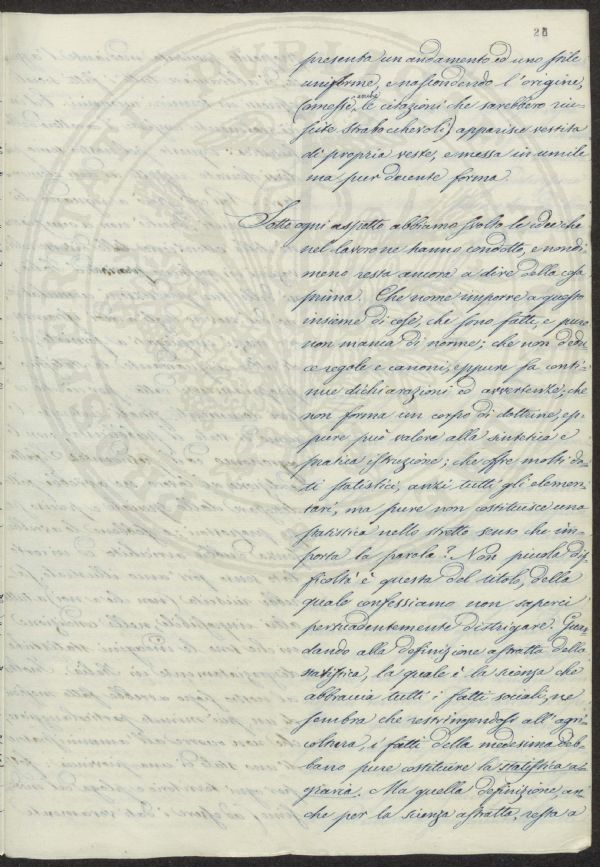 21
presenta un andamento ed uno stile
uniforme, e nascondendo l'origine,
(omesse anche le citazioni che sarebbero riu-
scite strabocchevoli) apparisce vestita
di propria veste, e messa in umile
ma pur decente forma.
Sotto ogni aspetto abbiamo svolto le idee che
nel lavoro ne hanno condotto, e nondi
meno resta ancora a dire della cosa
prima. Che nome imporre a questo
insieme di cose, che sono fatti, e pure
non manca di norme; che non dedu
ce regole e canoni, eppure fa conti-
nue dichiarazioni ed avvertenze, che
non forma un corpo di dottrine, ep-
pure può valere alla sintetica e
pratica istruzione; che offre molti da-
ti statistici, anzi tutti gli elemen-
tari, ma pure non costituisce una
statistica nello stretto senso che im-
porta la parola? Non piccola dif-
ficoltà è questa del titolo, della
quale confessiamo non saperci
persuadentemente distrigare. Guar
dando alla definizione astratta della
statistica, la quale è la scienza che
abbraccia tutti i fatti sociali, ne
sembra che restringendosi all'agri
coltura, i fatti della medesima deb
bano pure costituire la statistica a-
graria. Ma quella definizione, an
che per la scienza astratta, resta a